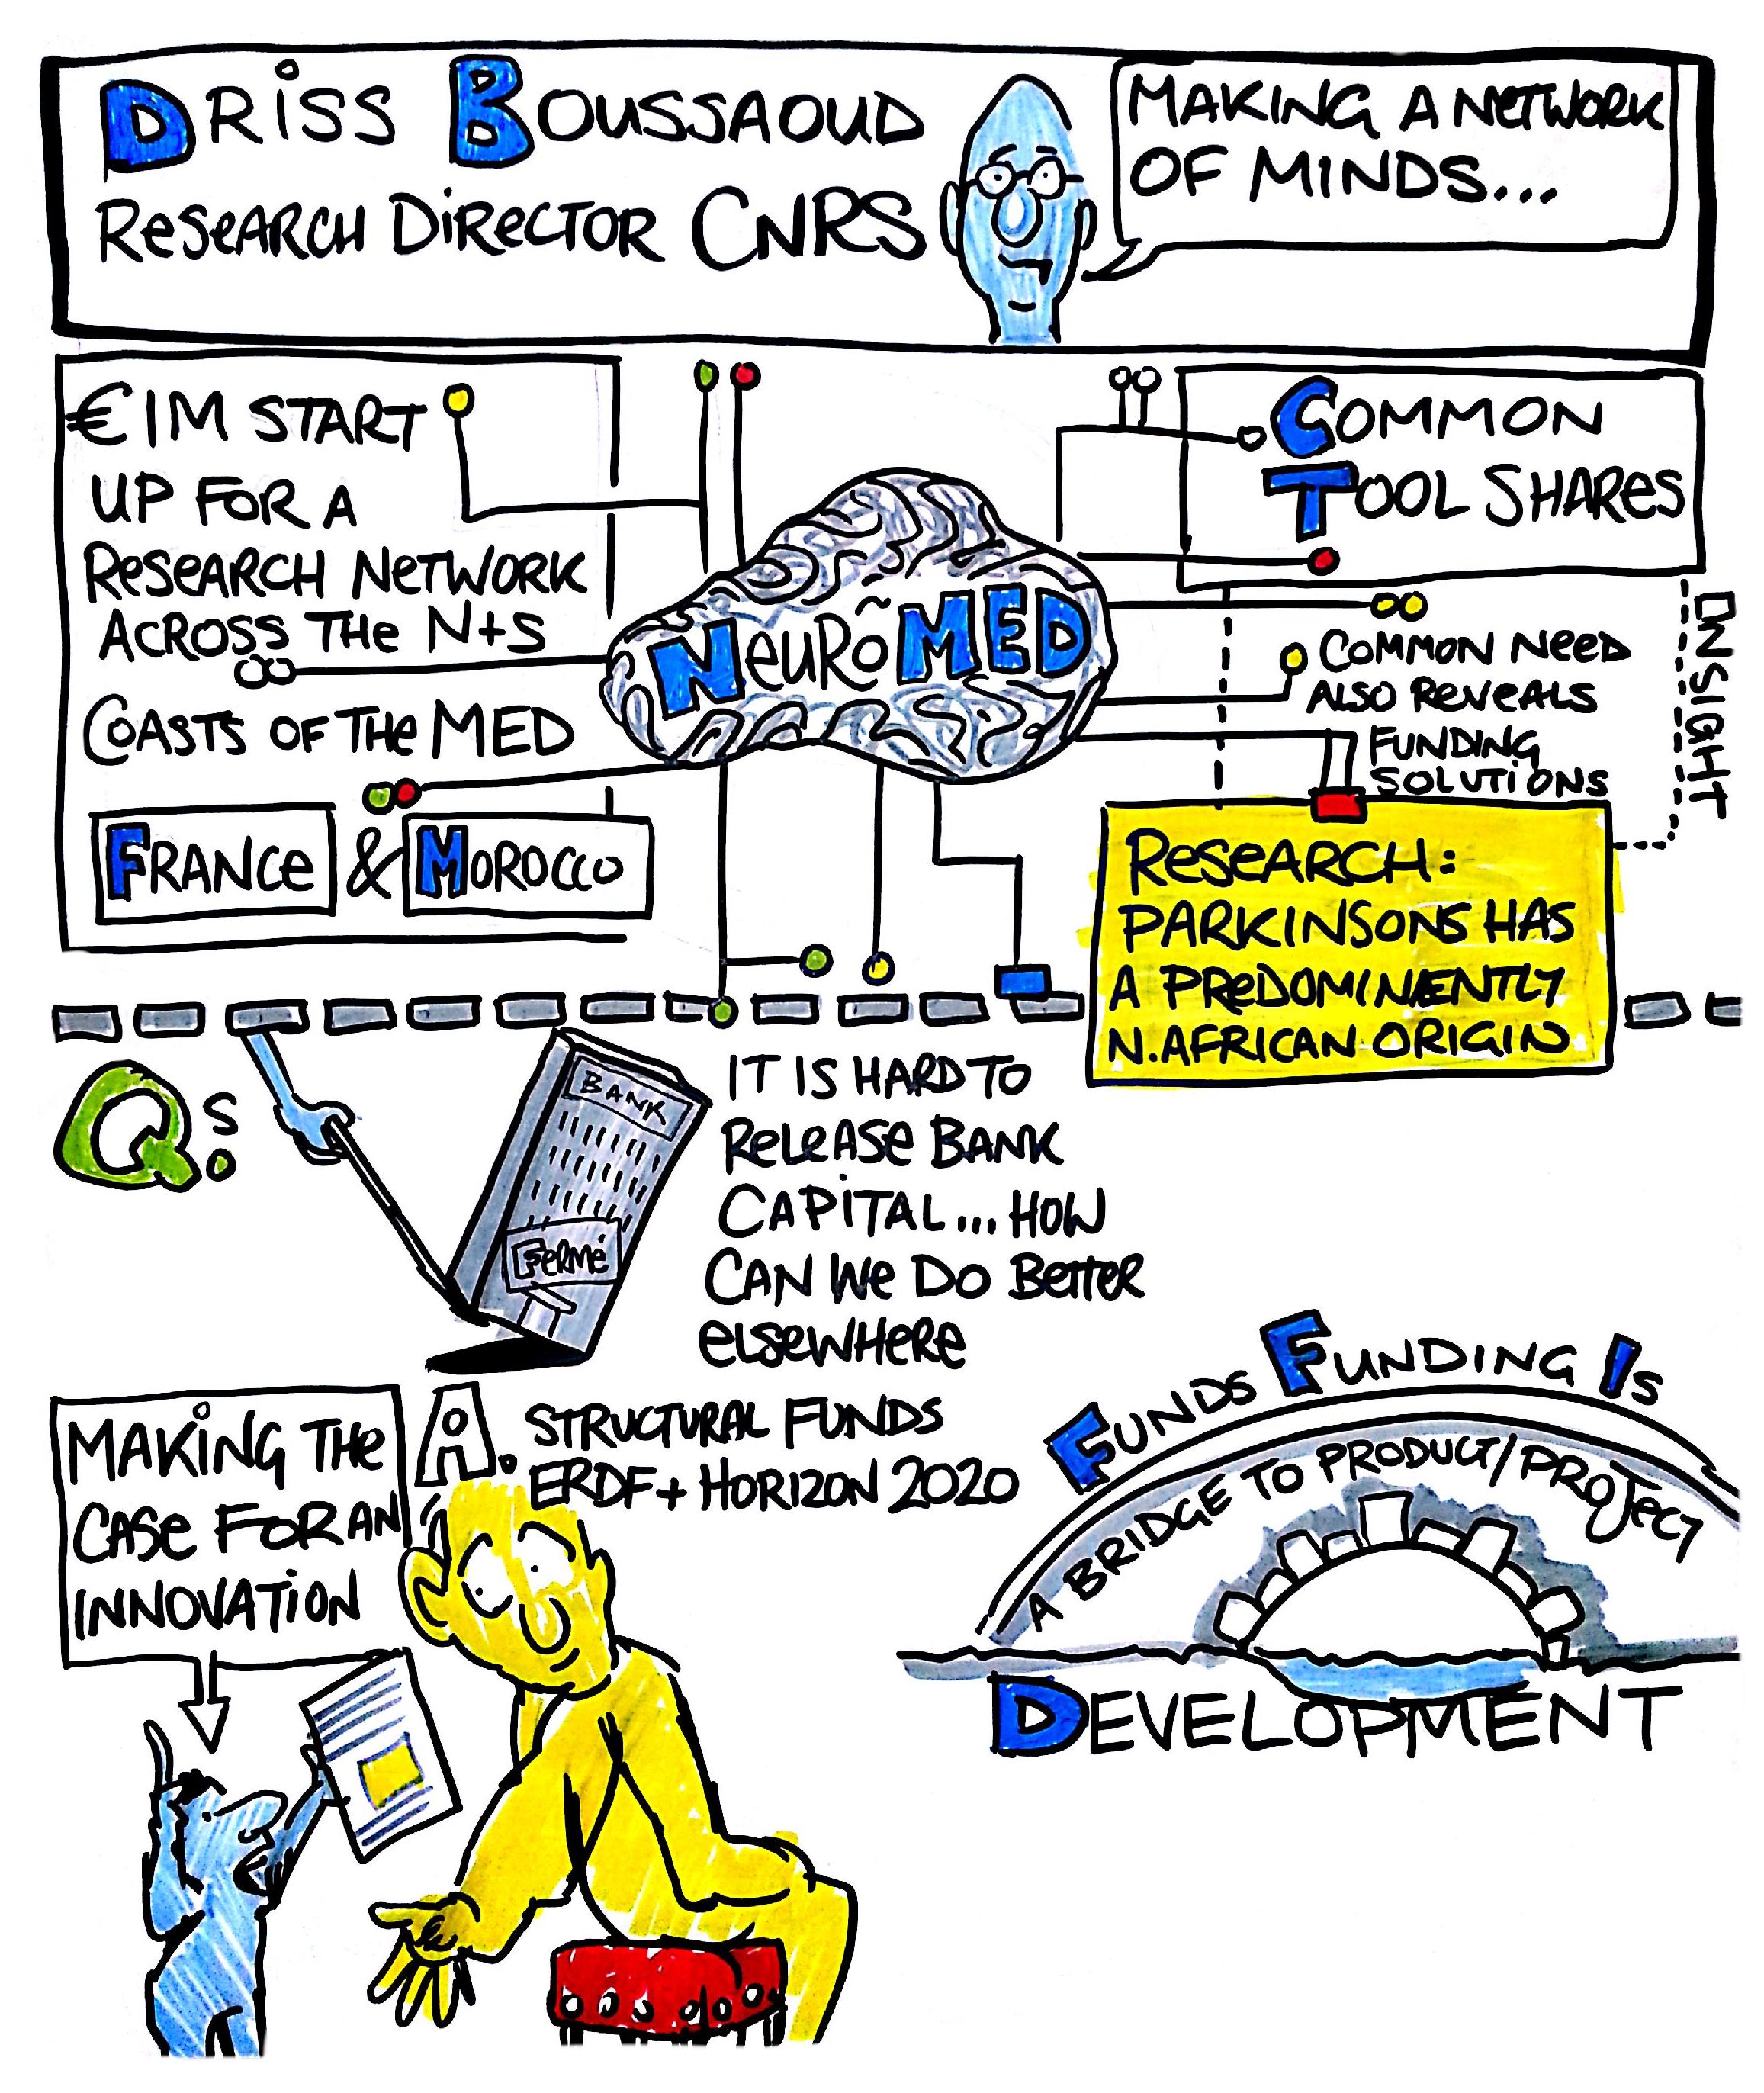 DRISS BOUSSAOUD
RESEARCH DIRECTOR CNRS
MAKING A NETWORK
OF MINDS...
€1M START
UP FOR A
RESEARCH NETWORK
ACROSS THE N+S
COASTS OF THE MED
FRANCE & MOROCCO
NEURO MED
COMMON
TOOL SHARES
COMMON NEED
ALSO REVEALS
FUNDING
SOLUTIONS
INSIGHT
RESEARCH:
PARKINSONS HAS
A PREDOMINENTLY
N.AFRICAN ORIGIN
Qs
BANK
FERMÉ
IT IS HARD TO
RELEASE BANK
CAPITAL... HOW
CAN WE DO BETTER
ELSEWHERE
MAKING THE
CASE FOR AN
INNOVATION
A. STRUCTURAL FUNDS
ERDF + HORIZON 2020
FUNDS FUNDING IS
A BRIDGE TO PRODUCT/PROJECT
DEVELOPMENT